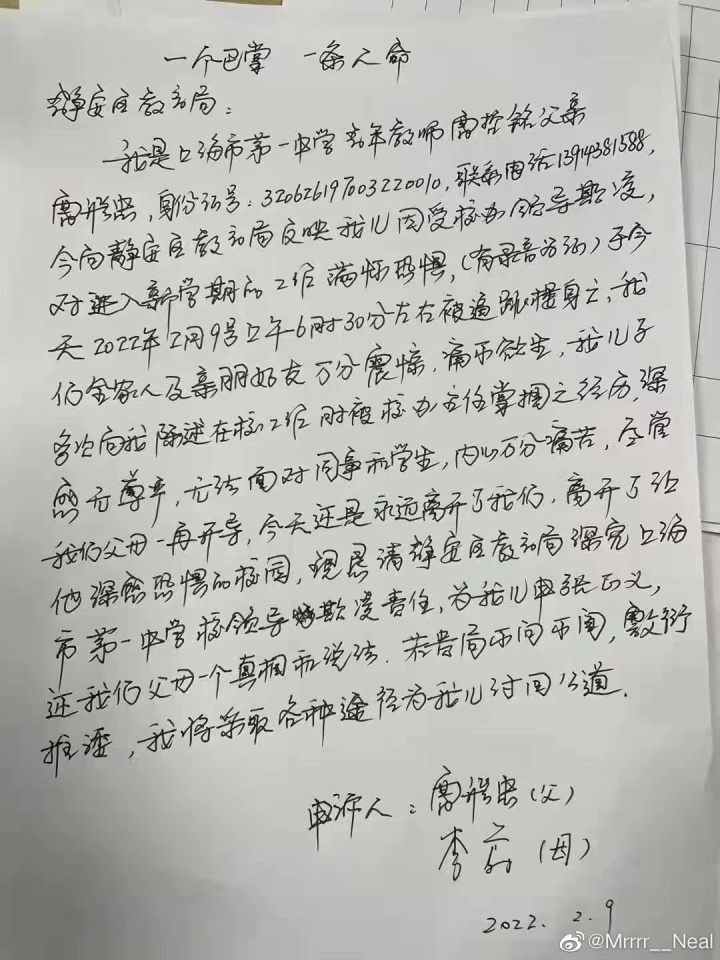 一个巴掌 一条人命
静安区教育局：
我是上海市第一中学青年教师 父亲
身份证号：320626197003220010，联系电话13914381588，
今向静安区教育局反映我儿因受校办领导欺凌，
对进入新学期的工作满怀恐惧，（有录音为证）于今
天2022年2月9号上午6时30分左右被逼跳楼身亡，我
们全家人及亲朋好友万分震惊，痛不欲生，我儿子
多次向我陈述在校工作时被校办主任掌掴之经历，深
感无尊严，无法面对同事和学生，内心万分痛苦，尽管
我们父母一再开导，今天还是永远离开了我们，离开了让
他深感恐惧的校园，现恳请静安区教育局深究上海
市第一中学校领导欺凌责任，为我儿申张正义，
还我们父母一个真相和说法．若贵局不问不闻，敷衍
推诿，我将采取各种途径为我儿讨回公道．
申诉人：（父）
李 （母）
2022．2．9
@Mrrrr__Neal